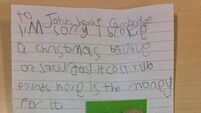 to John Lewis Cambridge
I'M sorry I broke
a christmas bauble
on saturday. it cost
pounds. here is the money
for it.